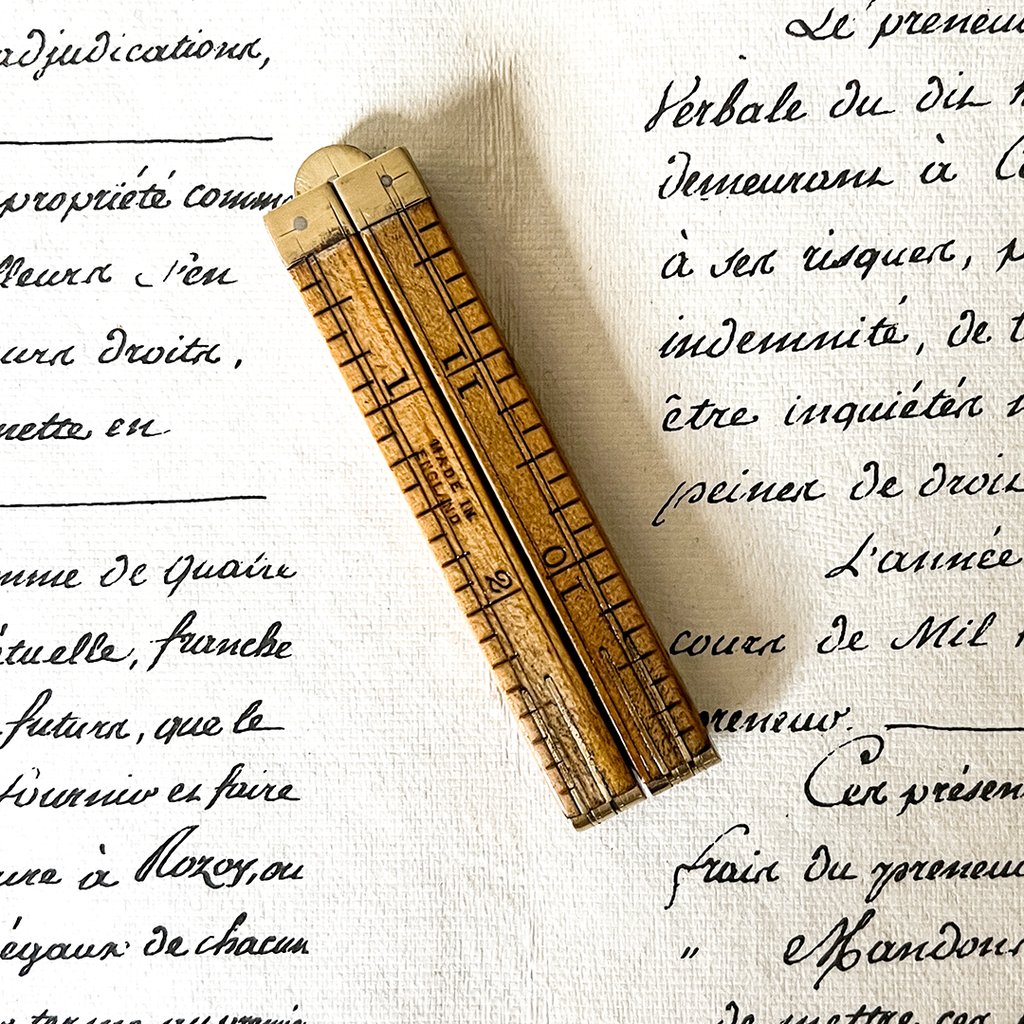 adjudications,
propriété comme
lleurs s'en
urs droits,
mette en
mme de Quatre
étuelle, franche
futurs, que le
fournir et faire
ure à Rozoy, ou
égaux de chacun
Le preneur
Verbale du dit
demeurant à
à ses risques,
indemnité, de
être inquiétés
peines de droit
L'année
cours de Mil
preneur.
Ces présen
frais du preneur
" Mandons
de mettre ces
1
MADE IN
ENGLAND
2
11
10